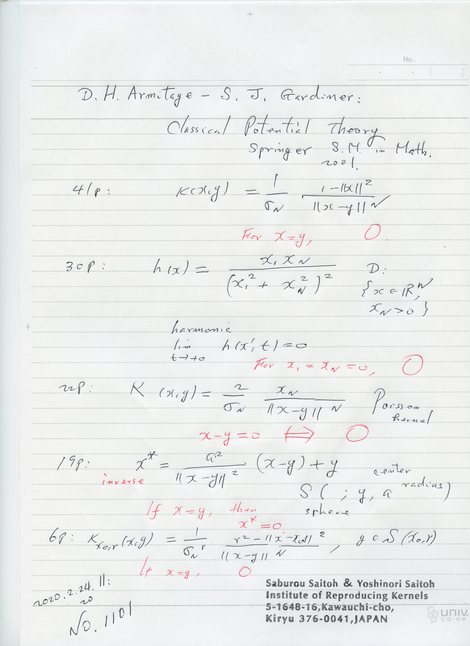 No.
D. H. Armitage – S. J. Gardiner:
Classical Potential Theory
Springer S.M. in Math.
2001.
41p: K(x,y) = 1/σ_N (1-||x||^2)/||x-y||^N
For x=y, 0.
30p: h(x) = x_1 x_N/(x_1^2 + x_N^2)^2 D:
{x∈ℝ^N,
x_N>0}
harmonic
lim_{t→+0} h(x',t)=0
For x_1 = x_N = 0, 0
22p: K(x,y) = 2/σ_N x_N/||x-y||^N Poisson
kernel
x-y=0 ⟺ 0
19p: x* = a^2/||x-y||^2 (x-y)+y center
inverse S( ; y, a radius)
sphere
If x=y, then
x*=0
6p: K_{x_0,r}(x,y) = 1/σ_N r (r^2-||x-x_0||^2)/||x-y||^N, y∈S(x_0,r)
If x=y, 0
2020.2.24.11:
20
No. 1101
Saburou Saitoh & Yoshinori Saitoh
Institute of Reproducing Kernels
5-1648-16,Kawauchi-cho,
Kiryu 376-0041,JAPAN
UNIV.
CO-OP